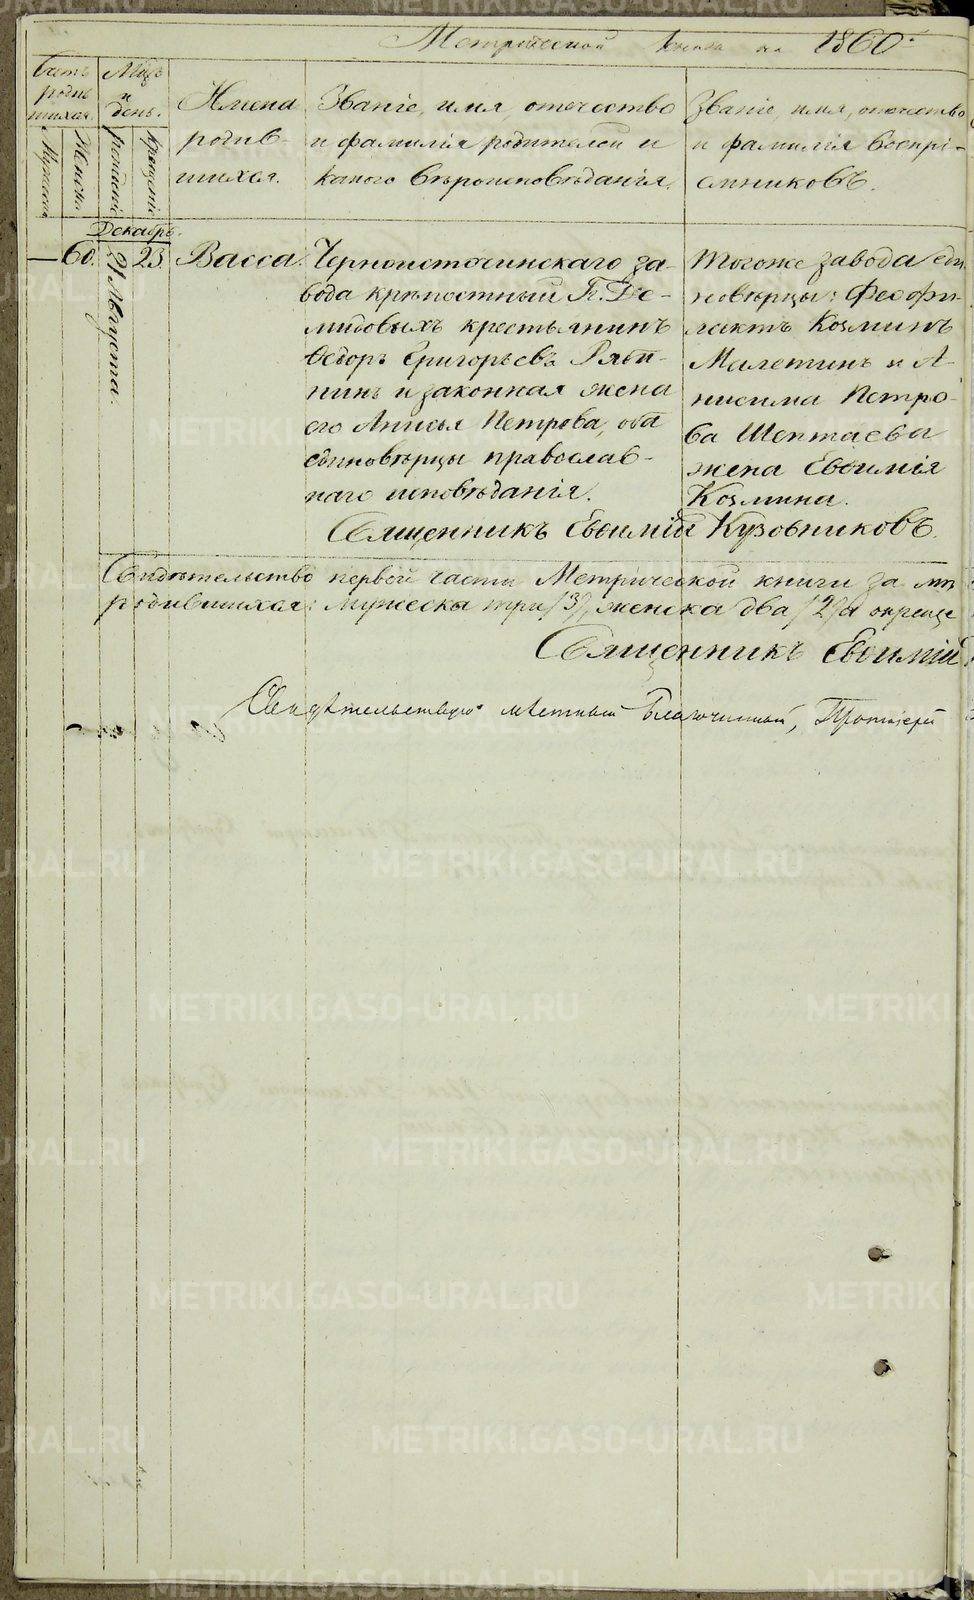 Метрической книги на 1860й
Счетъ родившихся.
Мужеска
Женска
Мѣсяцъ и день.
рожденія
крещенія
Имена
родив-
шихся.
Званіе, имя, отечество
и фамилія родителей и
какого вѣроисповѣданія.
Званіе, имя, отечество
и фамилія воспрі-
емниковъ.
Декабрь.
— 60. 21 Августа. 23. Васса.
Черноисточинскаго за-
вода крѣпостный Г. Де-
мидовыхъ крестьянинъ
Ѳедоръ Григорьевъ Ряби-
нинъ и законная жена
его Анисья Петрова, оба
единовѣрцы православ-
наго исповѣданія.
Тогоже завода еди
новѣрцы: Феофи-
лактъ Козминъ
Малетинъ и А-
нисима Петро-
ва Шептаева
жена Евѳимія
Козмина.
Священникъ Евѳимій Кузовниковъ.
Свидѣтельство первой части Метрической книги за
родившихся: мужеска три /3/, женска два /2/ а окреще
Священникъ Евѳимій
Свидѣтельствую мѣстный Благочинный, Протоіерей
METRIKI.GASO-URAL.RU